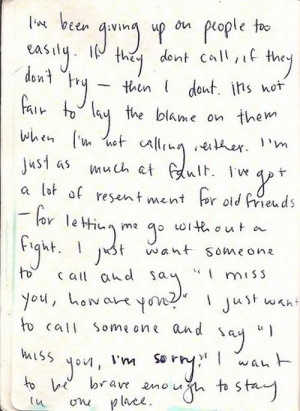 I've been giving up on people too
easily. If they dont call, if they
don't try — then I dont. it's not
fair to lay the blame on them
when I'm not calling, either. I'm
just as much at fault. I've got
a lot of resentment for old friends
— for letting me go without a
fight. I just want someone
to call and say "I miss
you, how are you?" I just want
to call someone and say "I
miss you, I'm sorry." I want
to be brave enough to stay
in one place.